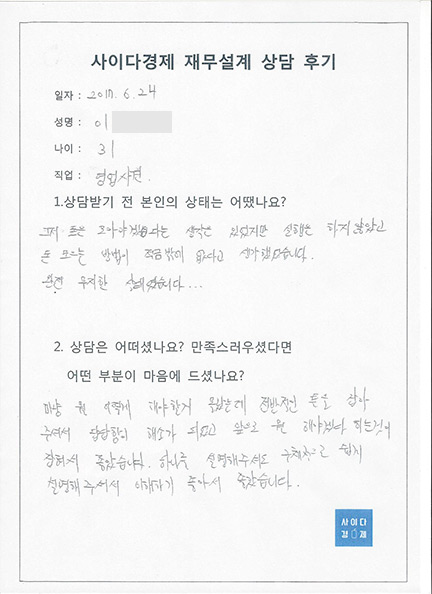 사이다경제 재무설계 상담 후기
일자 : 2017. 6. 24
성명 : 이
나이 : 31
직업 : 영업사원.
1.상담받기 전 본인의 상태는 어땠나요?
그저 돈은 모아야겠다라는 생각은 있었지만 실행은 하지 않았고
돈 모으는 방법이 적금밖에 없다고 생각했었습니다.
완전 무지한 상태였습니다...
2. 상담은 어떠셨나요? 만족스러우셨다면
어떤 부분이 마음에 드셨나요?
마냥 뭘 어떻게 해야할지 몰랐는데 전반적인 틀을 잡아
주셔서 답답함이 해소가 되었고 앞으로 뭘 해야겠다 하는것이
잡혀서 좋았습니다. 하나하나 설명해주셔도 구체적으로 쉽게
설명해주셔서 이해하기 좋아서 좋았습니다.
사이다
경제